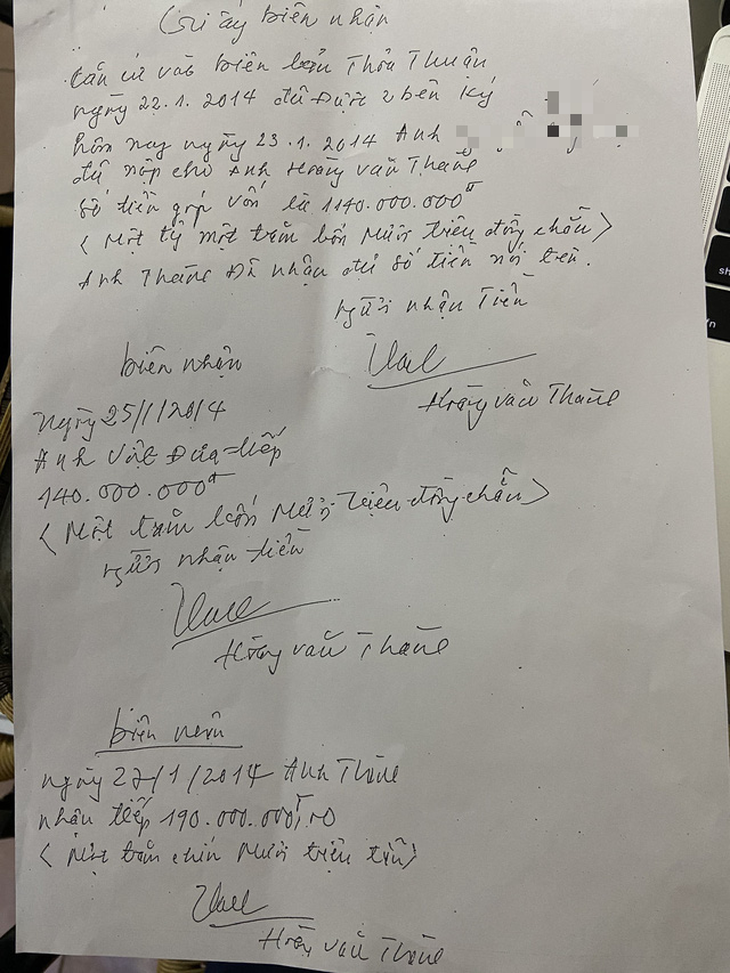 Giấy biên nhận
Căn cứ vào biên bản Thỏa Thuận
ngày 22.1.2014 đã được 2 bên ký
hôm nay ngày 23.1.2014 Anh
đã nộp cho Anh Hoàng văn Thăng
số tiền góp vốn là 1140.000.000đ
< Một tỷ một trăm bốn Mươi triệu đồng chẵn >
Anh Thăng Đã nhận đủ số tiền nói trên.
người nhận Tiền
Hoàng văn Thăng
biên nhận
ngày 25/1/2014
Anh Việt Đưa tiếp
140.000.000đ
< Một trăm bốn Mươi triệu đồng chẵn >
người nhận tiền
Hoàng văn Thăng
biên nhận
ngày 27/1/2014 Anh Thăng
nhận tiếp 190.000.000đ
< Một trăm chín Mươi triệu >
Hoàng văn Thăng